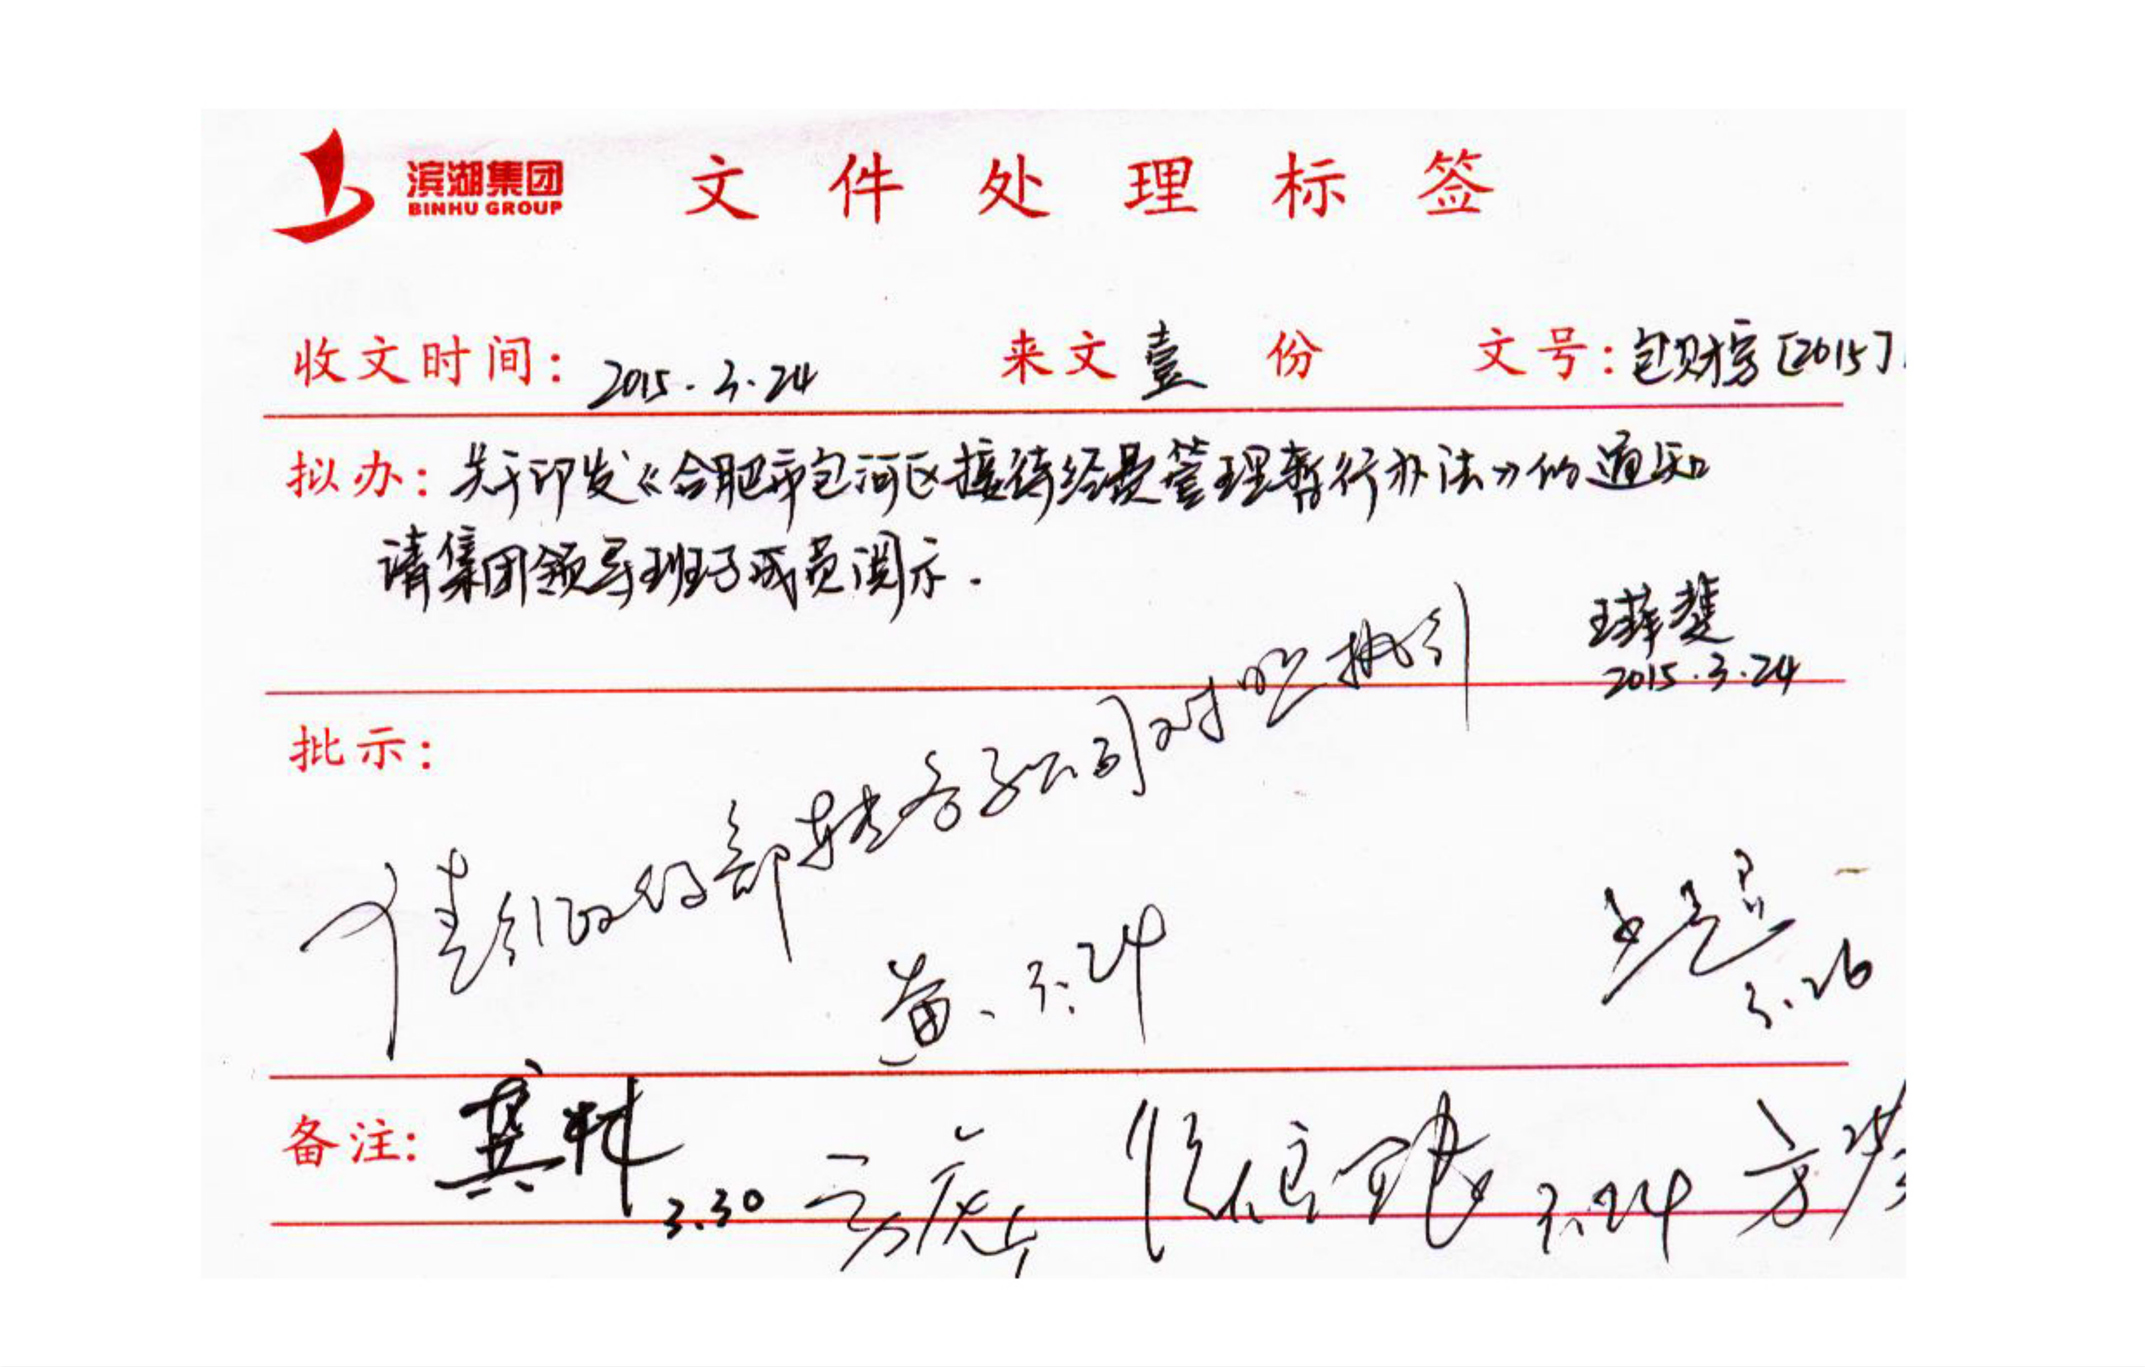 滨湖集团
BINHU GROUP
文件处理标签
收文时间：2015.3.24 来文壹份 文号：包财字〔2015〕
拟办：关于印发《合肥市包河区接待经费管理暂行办法》的通知
请集团领导班子成员阅示.
2015.3.24
批示：
请行政部转各子公司对照执行
黄 3.24
3.26
备注：龚
3.30
3.24
方